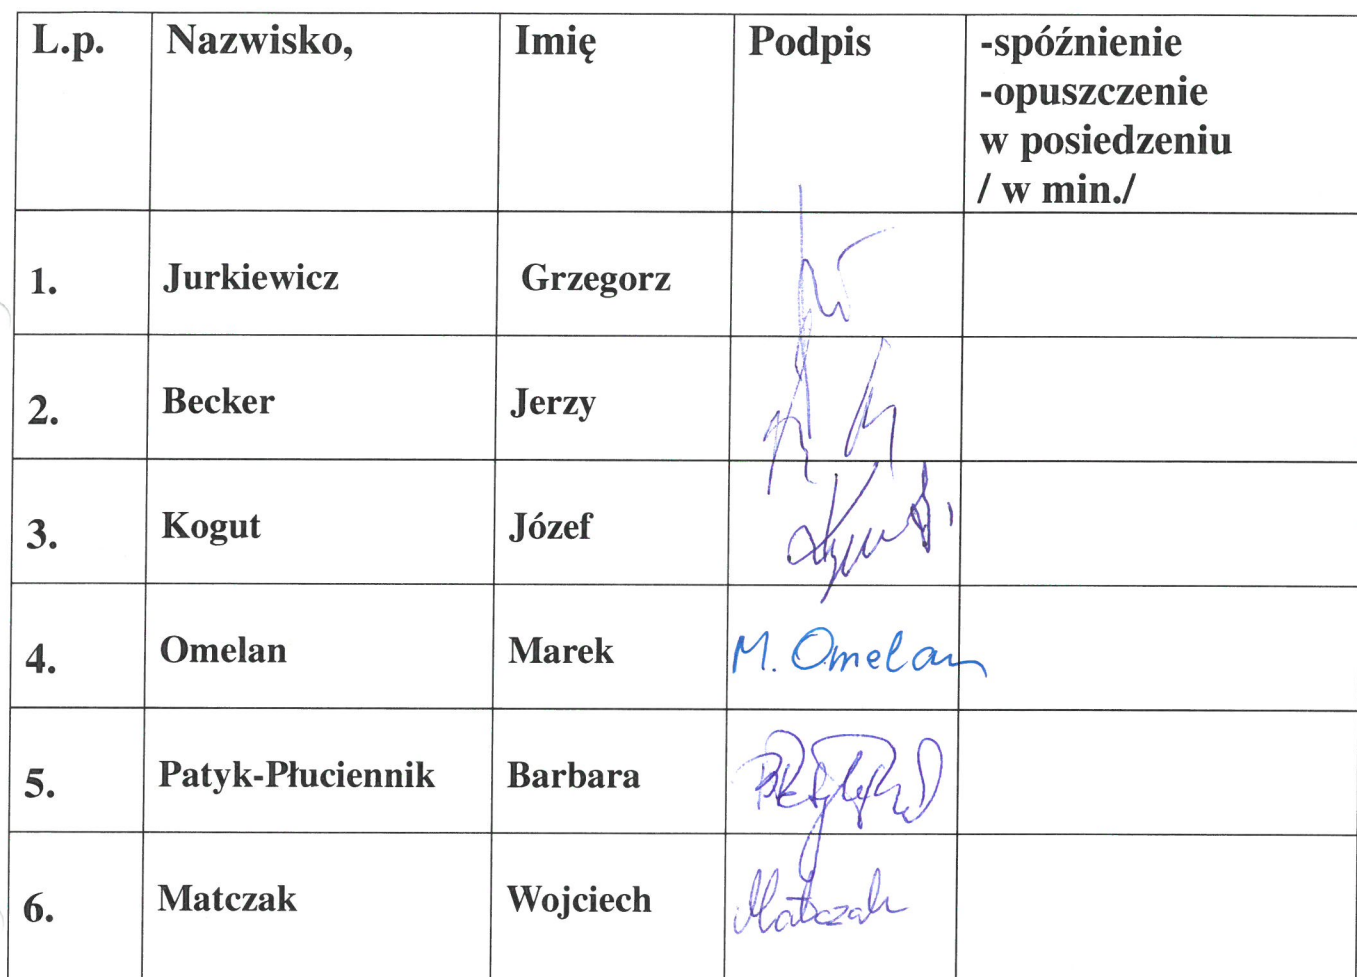 L.p. Nazwisko, Imię Podpis -spóźnienie
-opuszczenie
w posiedzeniu
/ w min./
1. Jurkiewicz Grzegorz
2. Becker Jerzy
3. Kogut Józef
4. Omelan Marek M. Omelan
5. Patyk-Płuciennik Barbara
6. Matczak Wojciech Matczak